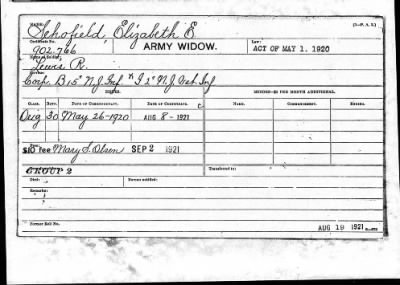 NAME: Schofield, Elizabeth E. [3—P. A. S.]
Certificate No. 902.766 ARMY WIDOW. Law: ACT OF MAY 1, 1920
Name of Soldier: Lewis R.
Service: Corp. B 15" N.J. Inf & I 2" N.J. Vet. Inf
CLASS. RATE. DATE OF COMMENCEMENT. DATE OF CERTIFICATE. NAME. COMMENCEMENT. ENDING.
Orig 30 May 26-1920 AUG 8-1921
$10 Fee Mary S. Olsen SEP 2 1921
GROUP 2 Transferred to:
Died: Bureau notified:
Remarks:
Former Roll No. AUG 19 1921